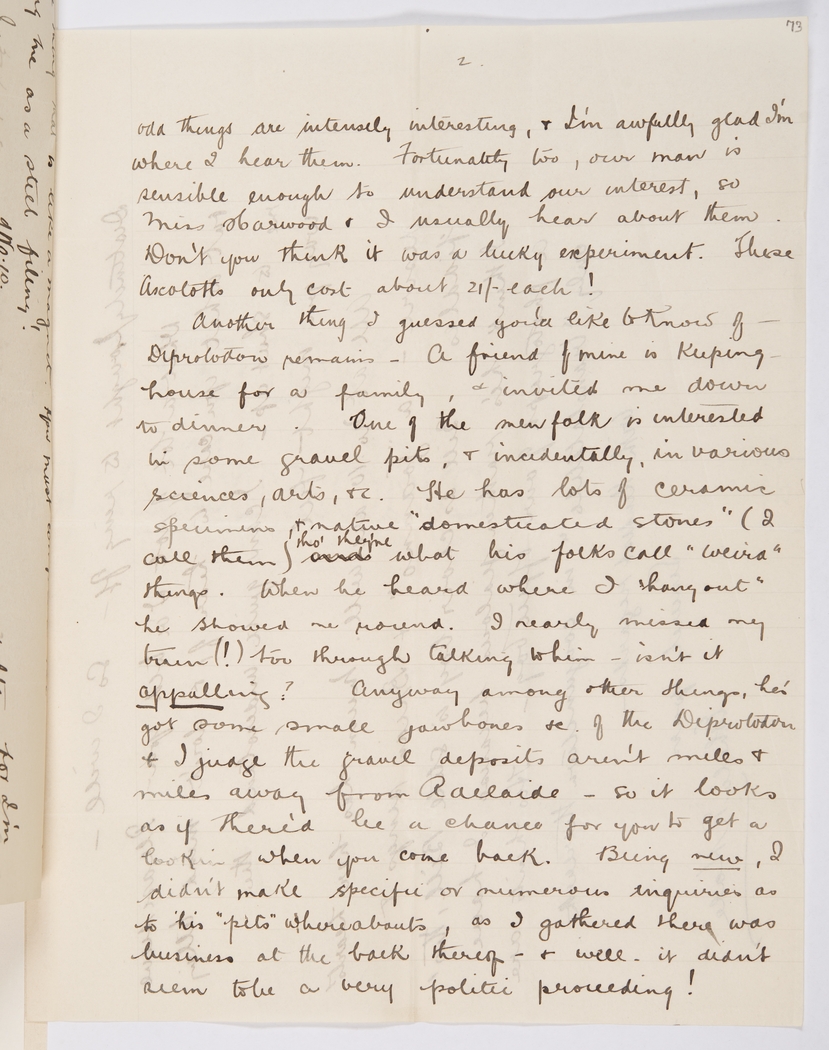 73
2.
odd things are intensely interesting, & I'm awfully glad I'm
where I hear them. Fortunately too, our man is
sensible enough to understand our interest, so
Miss Harwood & I usually hear about them.
Don't you think it was a lucky experiment. These
Axolotls only cost about 21/- each!
Another thing I guessed you'd like to know of —
Diprotodon remains - A friend of mine is keeping
house for a family, & invited me down
to dinner. One of the men folk is interested
in some gravel pits, & incidentally, in various
sciences, arts, &c. He has lots of ceramic
specimens, & native "domesticated stones" (I
call them) tho' they're what his folks call "weird"
things. When he heard where I "hang out"
he showed me round. I nearly missed my
train (!) too through talking to him - isn't it
appalling? Anyway among other things, he's
got some small jawbones &c. of the Diprotodon
& I judge the gravel deposits aren't miles &
miles away from Adelaide - so it looks
as if there'd be a chance for you to get a
look in when you come back. Being new, I
didn't make specific or numerous inquiries as
to his "pits" whereabouts, as I gathered there was
business at the back thereof - & well - it didn't
seem to be a very politic proceeding!
me as a steel filing!
for I'm